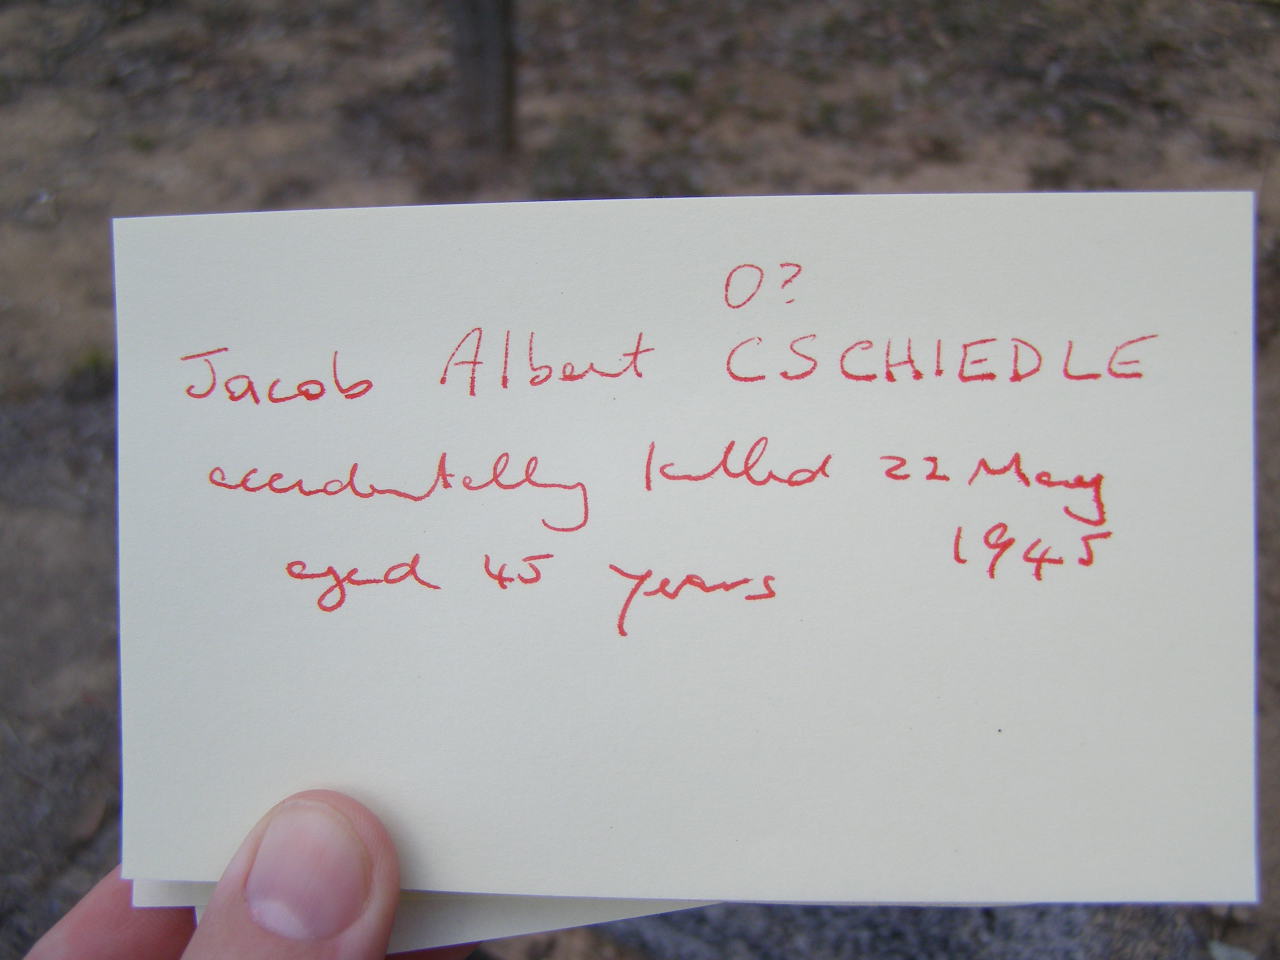 O?
Jacob Albert CSCHIEDLE
accidentally killed 22 May
1945
aged 45 years